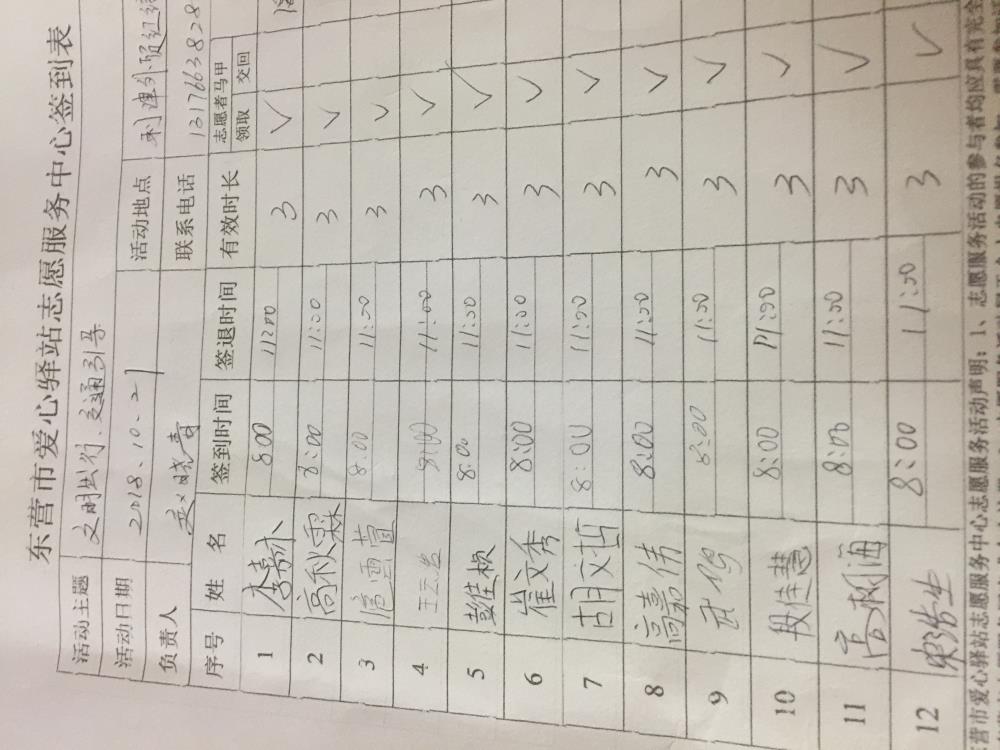 东营市爱心驿站志愿服务中心签到表
活动主题 文明出行.交通引导 活动地点 利津外贸红绿
活动日期 2018.10.21 联系电话 1317663828
负责人 赵晓青
序号 姓名 签到时间 签退时间 有效时长 志愿者马甲 领取 交回
1 8:00 11:00 3 √
2 高秋霖 8:00 11:00 3 √
3 8:00 11:00 3 √
4 王云当 8:00 11:00 3 √
5 彭佳桢 8:00 11:00 3 √
6 崔文秀 8:00 11:00 3 √
7 胡文哲 8:00 11:00 3 √
8 高嘉伟 8:00 11:00 3 √
9 8:00 11:00 3 √
10 段佳慧 8:00 11:00 3 √
11 高树海 8:00 11:00 3 √
12 8:00 11:00 3 √
东营市爱心驿站志愿服务中心志愿服务活动声明：1、志愿服务活动的参与者均应具有完全